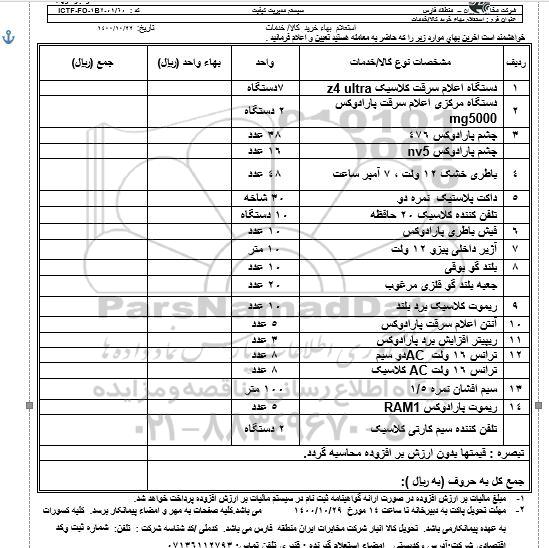 شرکت مخا ان - منطقه فارس
سیستم مدیریت کیفیت
کد : ICTF-FO-182-01/10
عنوان فرم : استعلام بهاء خرید کالا/خدمات
استعلام بهاء خرید کالا/ خدمات
تاریخ: ۱۴۰۰/۱۰/۲۲
خواهشمند است آخرین بهای موارد زیر را که حاضر به معامله هستید تعیین و اعلام فرمائید .
ردیف مشخصات نوع کالا/خدمات واحد بهاء واحد (ریال) جمع (ریال)
۱ دستگاه اعلام سرقت کلاسیک z4 ultra ۷دستگاه
۲ دستگاه مرکزی اعلام سرقت پارادوکس mg5000 ۲ دستگاه
۳ چشم پارادوکس ۴۷۶ ۳۸ عدد
چشم پارادوکس nv5 ۱۶ عدد
۴ باطری خشک ۱۲ ولت ، ۷ آمپر ساعت ۴۸ عدد
۵ داکت پلاستیک نمره دو ۳۰ شاخه
تلفن کننده کلاسیک ۲۰ حافظه ۱۰ دستگاه
۶ فیش باطری پارادوکس ۱۰ عدد
۷ آژیر داخلی پیزو ۱۲ ولت ۱۰ متر
۸ بلند گو بوقی ۱۰ عدد
جعبه بلند گو فلزی مرغوب ۲۰ عدد
۹ ریموت کلاسیک برد بلند ۱۰ عدد
۱۰ آنتن اعلام سرقت پارادوکس ۵ عدد
۱۱ ریپیتر افزایش برد پارادوکس ۳ عدد
۱۲ ترانس ۱۶ ولت ACدو سیم ۸ عدد
ترانس ۱۶ ولت AC کلاسیک ۸ عدد
۱۳ سیم افشان نمره ۱/۵ ۱۰۰ متر
۱۴ ریموت پارادوکس RAM1 ۵ عدد
تلفن کننده سیم کارتی کلاسیک ۲ دستگاه
تبصره : قیمتها بدون ارزش بر افزوده محاسبه گردد.
جمع کل به حروف (به ریال ):
۱- مبلغ مالیات بر ارزش افزوده در صورت ارائه گواهینامه ثبت نام در سیستم مالیات بر ارزش افزوده پرداخت خواهد شد.
۲- مهلت تحویل پاکت به دبیرخانه تا ساعت ۱۴ مورخ ۱۴۰۰/۱۰/۲۹ می باشد.کلیه صفحات به مهر و امضاء پیمانکار برسد. کلیه کسورات
به عهده پیمانکارمی باشد. تحویل کالا انبار شرکت مخابرات ایران منطقه فارس می باشد. کدملی /کد شناسه شرکت : تلفن: شماره ثبت وکد
اقتصادی شرکت:آدرس وکدپستی امضاء استعلام گیرنده : تلفن تماس: ۰۷۱۳۶۱۱۲۷۹۳
ParsNamadData
۰۲۱-۸۸۳۴۹۶۷۰-۵